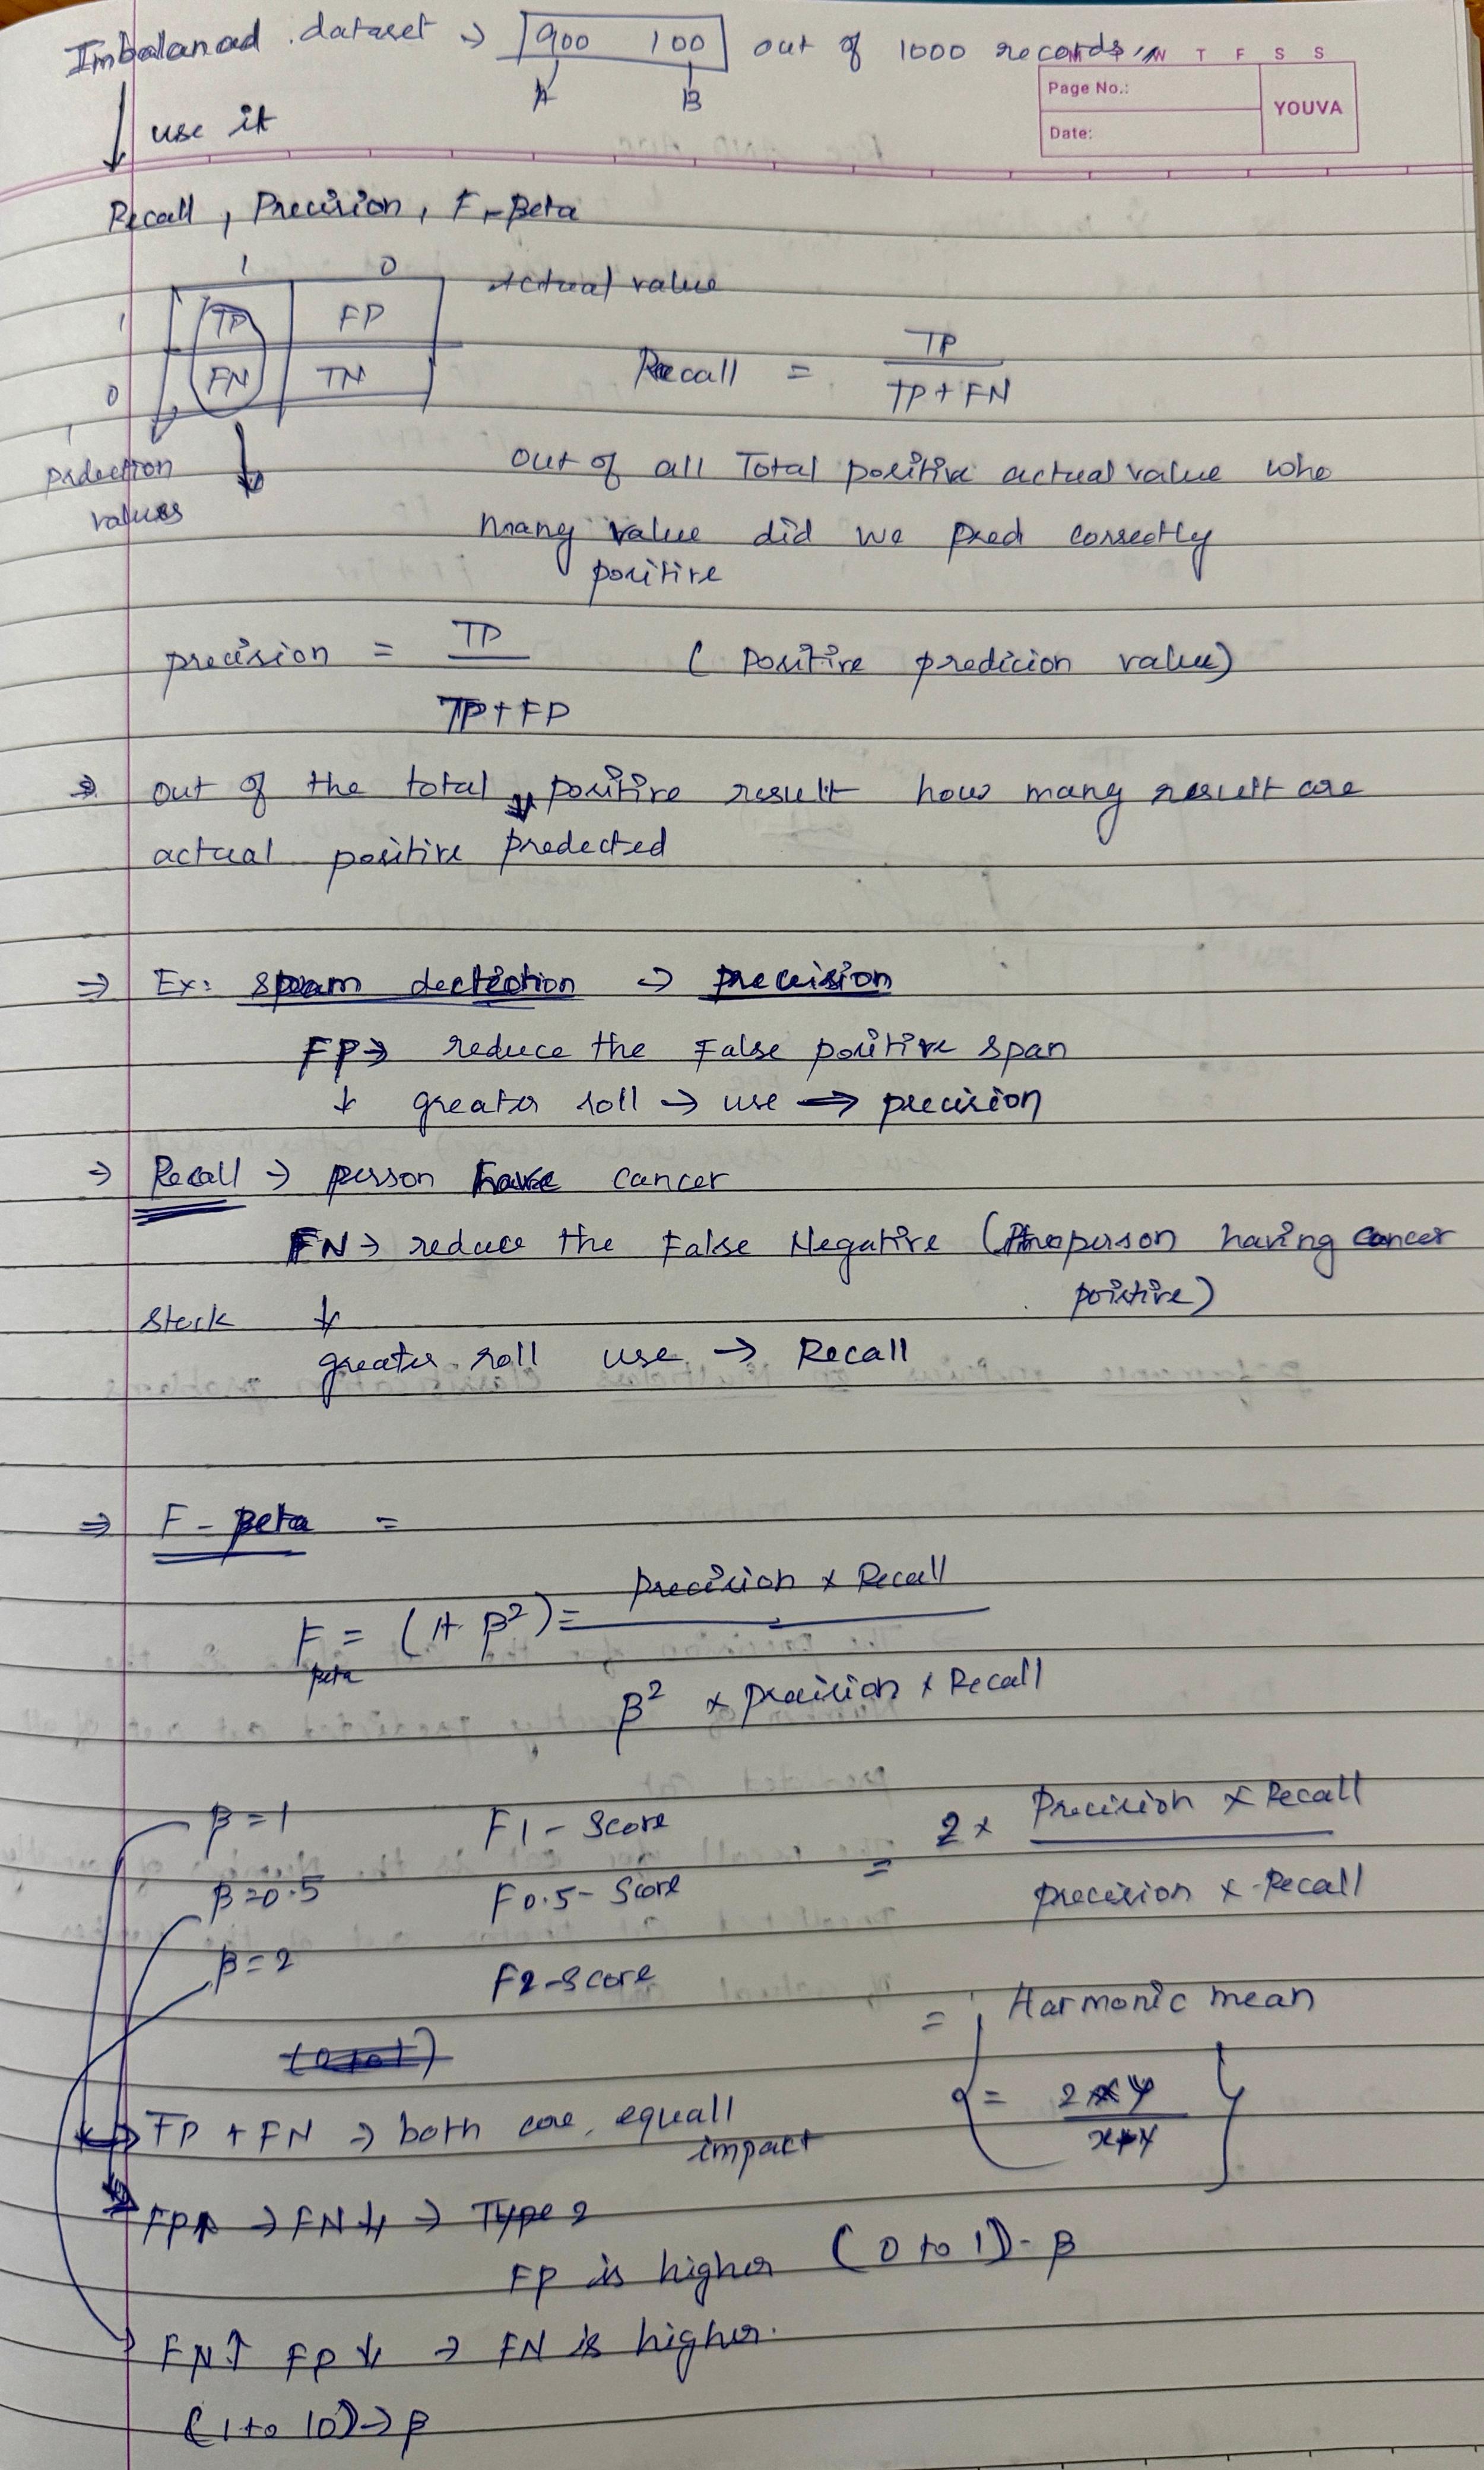 Imbalanad dataset → 900 100 out of 1000 records
M T W T F S S
Page No.:
YOUVA
Date:
A B
use it
Recall, Precision, F-Beta
1 0 Actual value
1 TP FP
0 FN TN
Recall = TP / TP + FN
prdection
values
out of all Total positive actual value who
many value did we pred correctly
positive
precision = TP / TP + FP ( positive predicion value)
⇒ out of the total positive result how many result are
actual positive predected
⇒ Ex: spam dectection → precision
FP → reduce the False positive span
↓ greater roll → use → precision
⇒ Recall → person have cancer
FN → reduce the False Negative (The person having cancer
poistive)
Stock ↓
greater roll use → Recall
⇒ F-Beta =
F Beta = (1+ β²) = precision × Recall / β² × precision × Recall
β=1 F1-Score = 2 × Precision × Recall / precision × Recall
β=0.5 F0.5-Score
β=2 F2-Score
= Harmonic mean
= 2xy / x+y
FP + FN → both are equall
impact
FP↑ → FN↓ → Type 2
FP is higher (0 to 1) - β
FN↑ FP↓ → FN is higher.
(1 to 10) → β